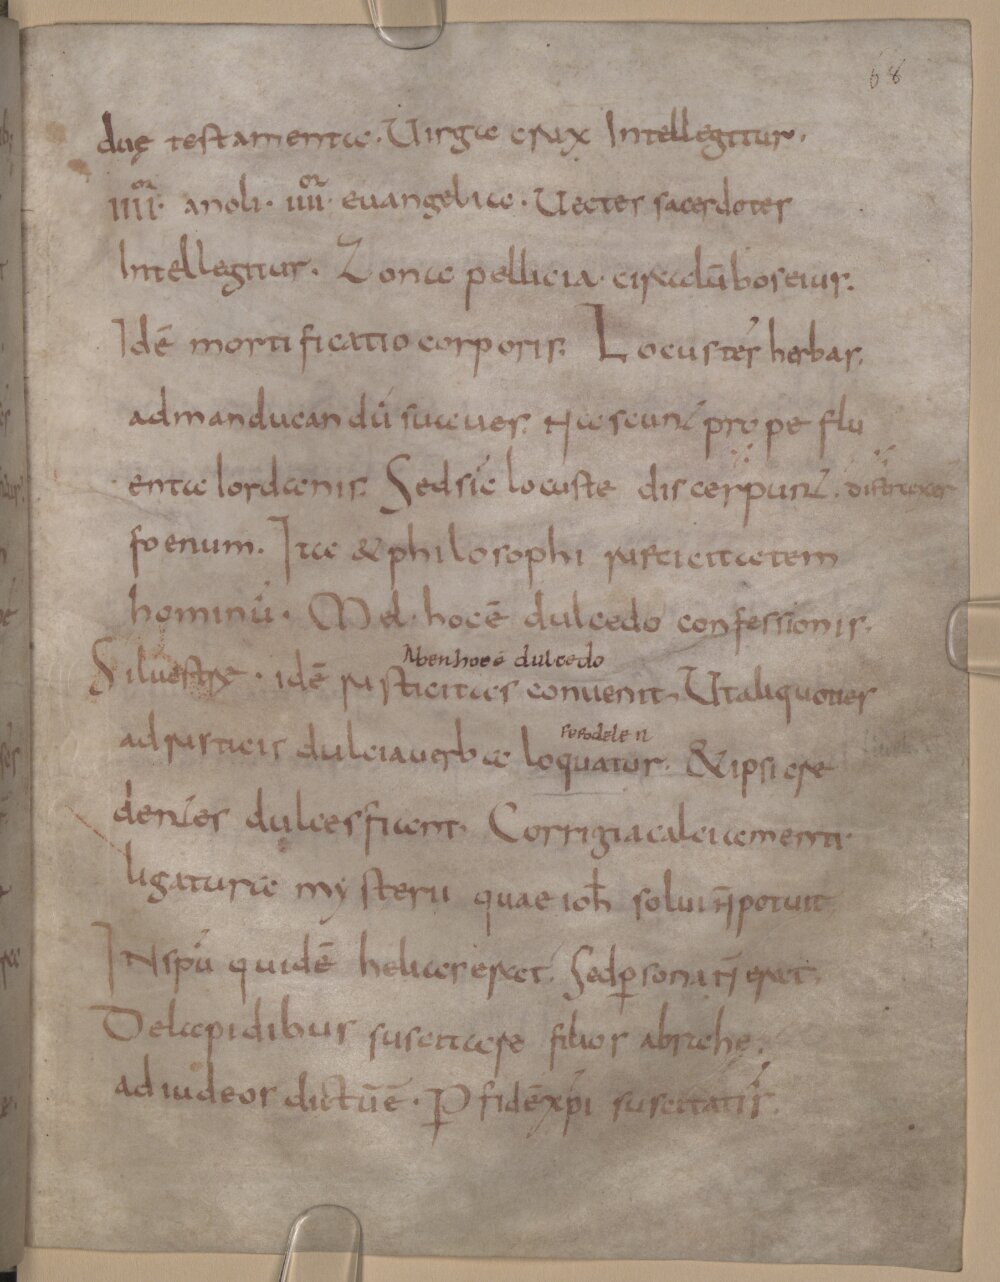 68
duę testamenta. Uirga crux Intellegitur.
IIII or. anoli. IIII or. euangelica. Uectes sacerdotes
Intellegitur. Zona pellicia. circa lūbos eius.
Idē mortificatio corporis. Locustes herbas.
ad manducandū suaues. Nascunt prope flu
enta Iordanis. Sed sic locuste discerpunt.
foenum. Ita & philosophi rusticitatem
hominū. Mel. hoc ē dulcedo confessionis.
Abenhoeē dulcedo
Siluestre. idē rusticitas conuenit. Ut aliquoties
ad rusticis dulcia uerba loquatur. & ipsi cre
dentes dulces ficent. Corrigia calciamenti
ligatura mysterii quae ioh̄ solui n̄ potuit
IN spū quidē helias erat. Sed persona n̄ erat.
De lapidibus suscitare filios abrahę.
ad iudeos dictū ē. P fidē xp̄i suscitatis.